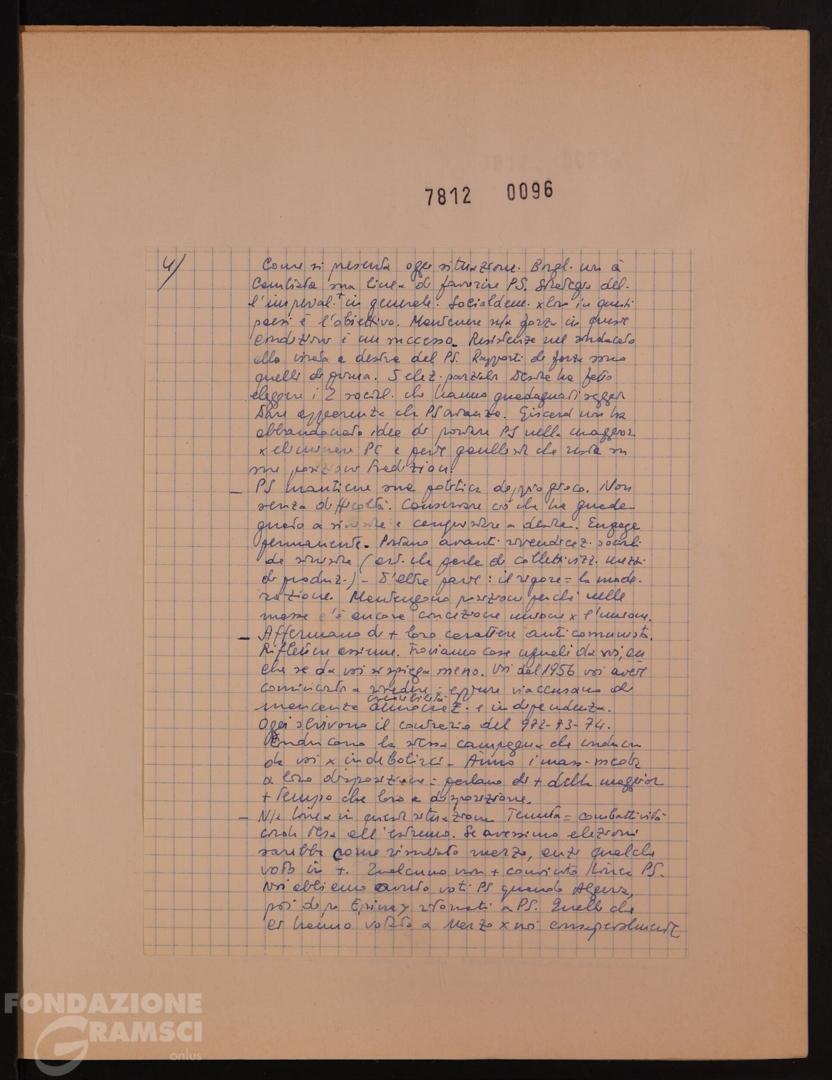 7812 0096
4/
Come si presenta oggi situazione. Borgh. non à
cambiato sua linea di favorire PS. Strategia del-
l'imperial. in generale. Socialdem. x loro in questi
paesi è l'obiettivo. Mantenere ns/a forza in queste
condizioni è un successo. Resistenze nel sindacato
alla virata a destra del PS. Rapporti di forza sono
quelli di prima. 5 elez. parziali destra ha fatto
eleggere i 2 social. che hanno guadagnati seggi
Dare apparenza che PS avanza. Giscard non ha
abbandonato idea di portare PS nella maggior.
x eliminare PC e parte gaullisti che resta su
sue posizioni tradizion.
– PS mantiene sua politica doppio gioco. Non
senza difficoltà. Conservare ciò che ha guada-
gnato a sinistra e conquistare a destra.
permanente. Portano avanti rivendicaz. sociali
de sinistra (art. che parla di collettivizz. mezzi
di produz.) – D'altra parte: il rigore = la mode-
razione. Mantengono posizioni perché nelle
masse c'è ancora concezione unione x l'unione.
– Affermano di + loro carattere anticomunista.
Riflettere assieme. Troviamo cose uguali da voi, an
che se da voi si spiega meno. Voi dal 1956 voi avete
cominciato a eppure vi accusano di
mancanza democraz. e indipendenza.
Oggi scrivono il contrario del 972-73-74.
Conducono la stessa campagna che conducon
da voi x indebolirci. Anno i mass-media
a loro disposizione: parlano di + della maggior
+ tempo che loro a disposizione.
– Ns/a linea in questa situazione. Tenuta = combattività
all'estremo. Se avessimo elezioni
sarebbe come risultato marzo, anzi qualche
voto in +. Qualcuno non + convinto linea PS.
Noi abbiamo avuto voti PS quando Algeria,
poi dopo Epinay ritornati a PS. Quelli che
ci hanno votato a marzo x noi consapevolmente
FONDAZIONE
GRAMSCI
onlus